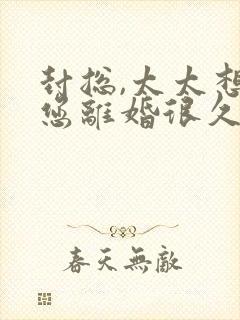 封总,太太想
您离婚很久
春天無敵